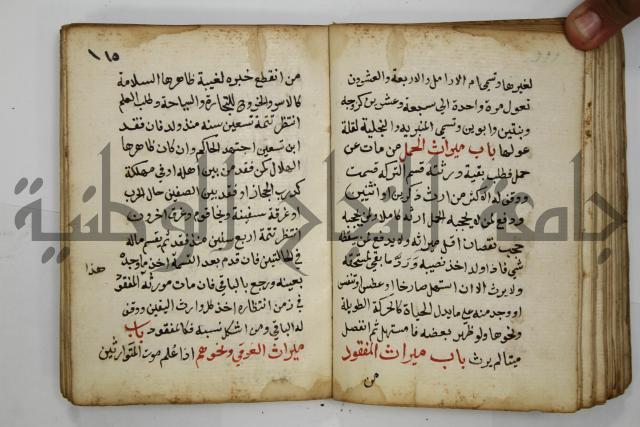 لغيرها وتسمى ام الارامل والاربعة والعشرون
تعول مرة واحدة الى سبعة وعشرين كزوجة
وبنتين وابوين وتسمى المنبرية والبخيلة لقلة
عولها باب ميراث الحمل من مات عن
حمل فطلب بقية ورثته قسم التركة قسمت
ووقف له الاكثر من ارث ذكرين او انثيين
ودفع لمن لا يحجبه الحمل ارثه كاملا ولمن يحجبه
حجب نقصان اقل ميراثه ولا يدفع لمن يسقطه
شي فاذا ولد اخذ نصيبه ورد ما بقي لمستحقه
ولا يرث الا ان استهل صارخا او عطس او تنفس
او وجد منه ما يدل الحياة كالحركة الطويلة
ونحوها ولو ظهر بعضه فاستهل ثم انفصل
ميتا لم يرث باب ميراث المفقود
من
١١٥
من انقطع خبره لغيبة ظاهرها السلامة
كالاسر والخروج للتجارة والسياحة وطلب العلم
انتظر تتمة تسعين سنة منذ ولد فان فقد
ابن تسعين اجتهد الحاكم وان كان ظاهرها
الهلاك كمن فقد من بين اهله او في مهلكة
كدرب الحجاز او فقد من بين الصفين حال الحرب
او غرقت سفينة ونجا قوم وغرق اخرون
انتظر تتمة اربع سنين منذ فقد ثم يقسم ماله
في الحالتين فان قدم بعد القسمة اخذ ما وجده
بعينه ورجع بالباقي فان مات مورثه المفقود
في زمن انتظاره اخذ كل وارث اليقين ووقف
له الباقي ومن اشكل نسبه فكالمفقود باب
ميراث الغرقى ونحوهم اذا علم موت المتوارثين
هذا
جامعة النجاح الوطنية